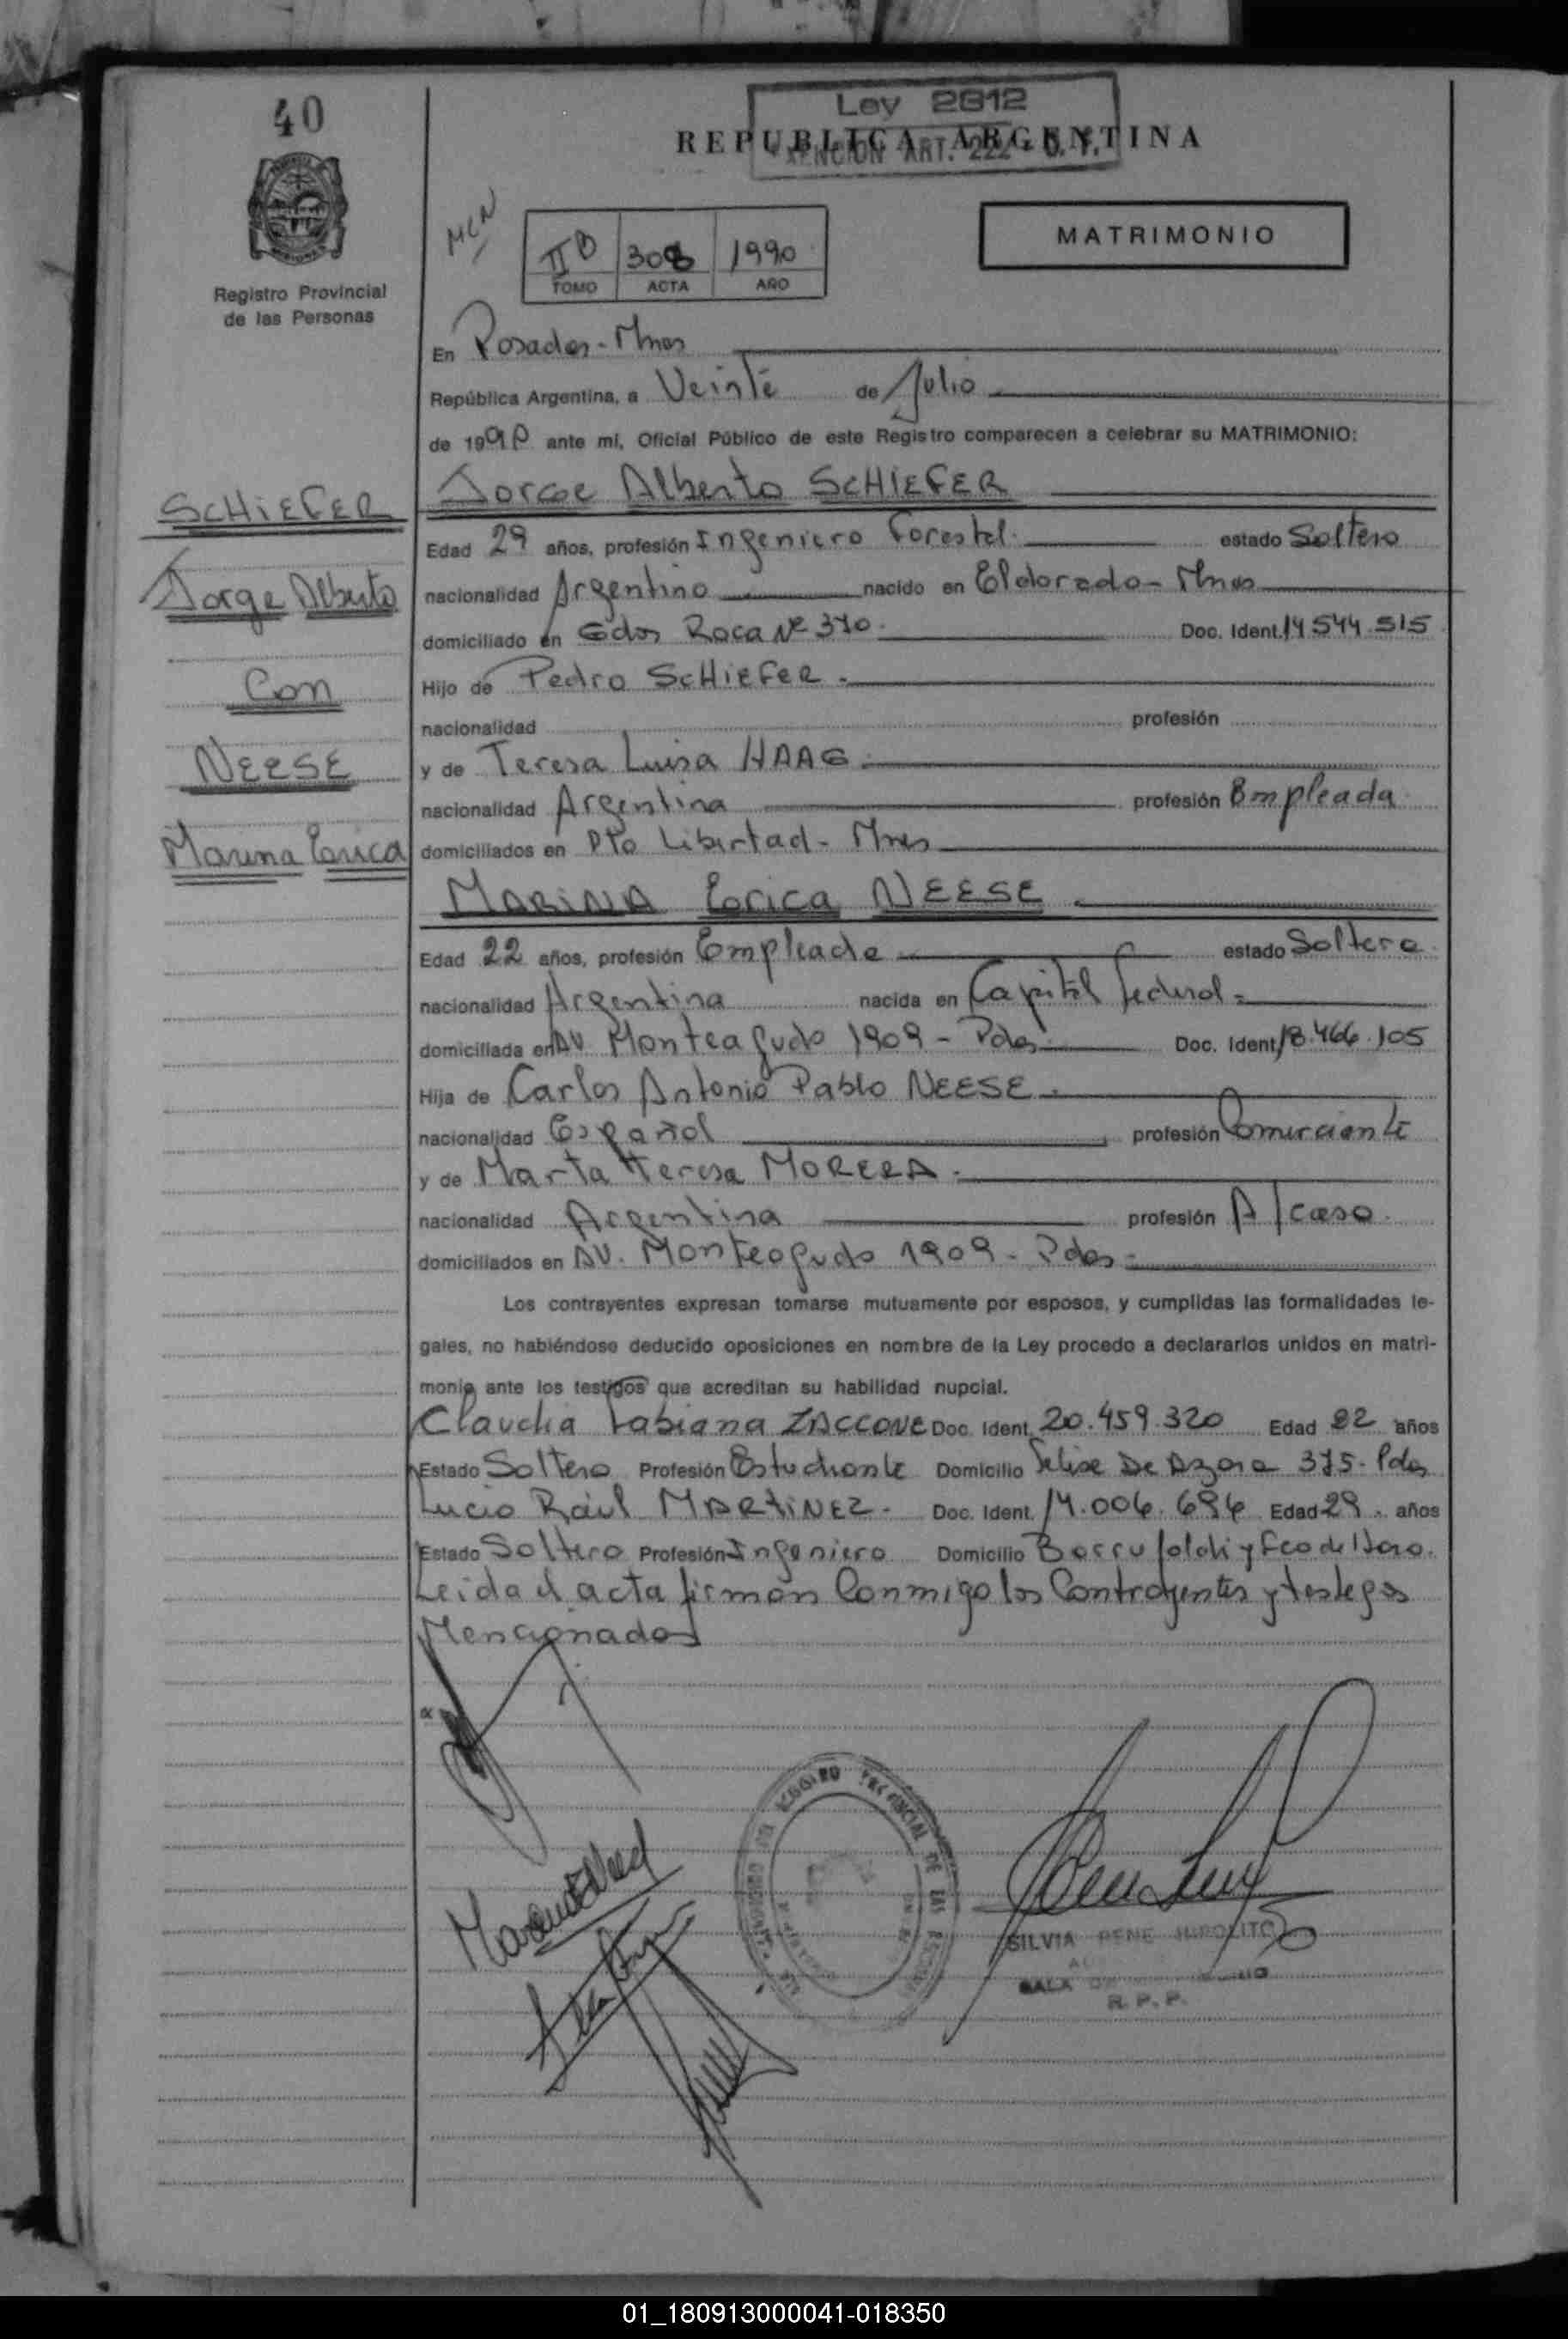 40
Ley 2812
REPUBLICA ARGENTINA
EXENCION ART. 222 - C. F.
MCN
MATRIMONIO
IIB 308 1990
TOMO ACTA AÑO
Registro Provincial
de las Personas
En Posadas - Mnes
República Argentina, a Veinte de Julio
de 1990 ante mi, Oficial Público de este Registro comparecen a celebrar su MATRIMONIO:
SCHIEFER
Jorge Alberto
Con
NEESE
Marina Erica
Jorge Alberto SCHIEFER
Edad 29 años, profesión Ingeniero Forestal. estado Soltero
nacionalidad Argentino nacido en Eldorado - Mnes
domiciliado en Gdor Roca Nº 370. Doc. Ident. 14.544.515
Hijo de Pedro SCHIEFER.
nacionalidad profesión
y de Teresa Luisa HAAG.
nacionalidad Argentina profesión Empleada
domiciliados en Pto Libertad - Mnes
MARINA Erica NEESE.
Edad 22 años, profesión Empleada estado Soltera
nacionalidad Argentina nacida en Capital Federal.
domiciliada en AV. Monteagudo 1909 - Pdas Doc. Ident. 18.466.105
Hija de Carlos Antonio Pablo NEESE.
nacionalidad Español profesión Comerciante
y de Marta Teresa MORERA.
nacionalidad Argentina profesión A/casa.
domiciliados en AV. Monteagudo 1909 - Pdas.
Los contrayentes expresan tomarse mutuamente por esposos, y cumplidas las formalidades le-
gales, no habiéndose deducido oposiciones en nombre de la Ley procedo a declararlos unidos en matri-
monio ante los testigos que acreditan su habilidad nupcial.
Claudia Fabiana ZACCONE Doc. Ident. 20.459.320 Edad 22 años
Estado Soltero Profesión Estudiante Domicilio Felix De Azara 375 - Pdas
Lucio Raúl MARTINEZ. Doc. Ident. 14.006.694 Edad 29. años
Estado Soltero Profesión Ingeniero Domicilio y Fco de Haro.
Leida el acta firman Conmigo los Contrayentes y testigos
Mencionados
REGISTRO PROVINCIAL DE LAS PERSONAS
SILVIA RENE HIPOLITO
SALA DE
R. P. P.
01_180913000041-018350